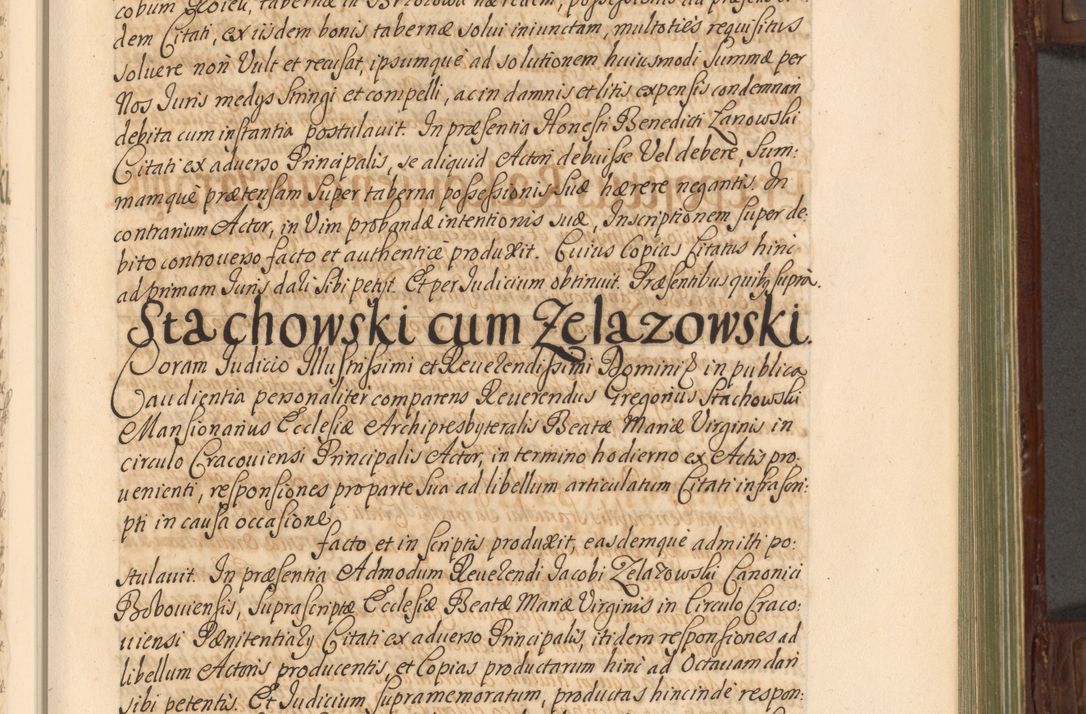 cobum Roieu, tabernæ in Brzozowa hæredem, possessionis ad præsens ei:
dem Citati, ex iisdem bonis tabernæ solui iniunctam, multoties requisitus
soluere non Vult et recusat, ipsumque ad solutionem huiusmodi Summæ per
Nos Iuris medys stringi et compelli, ac in damnis et litis expensis condemnari
debita cum instantia postulauit. In præsentia Honesti Benedicti Zanowski
Citati ex aduerso Principalis, se aliquid Actori debuisse Vel debere, Sum:
mamque prætensam Super taberna possessionis Suæ hærere negantis. In
contrarium Actor, in Vim probandæ intentionis suæ, Inscriptionem super de:
bito controuerso facto et authentice produxit. Cuius Copias Citatus hinc
ad primam Iuris dari sibi petyt. Et per Iudicium obtinuit. Præsentibus quibus supra.
Stachowski cum Zelazowski.
Coram Iudicio Illustrissimi et Reuerendissimi Domini in publica
audientia personaliter comparens Reuerendus Gregorius Stachowski
Mansionarius Ecclesiæ Archipresbyteralis Beatæ Mariæ Virginis in
circulo Cracouiensi Principalis Actor, in termino hodierno ex Actis pro:
uenienti, responsiones pro parte Sua ad libellum articulatum Citati infrascri:
pti in causa occasione
facto et in scriptis produxit, easdemque admitti po:
stulauit. In præsentia Admodum Reuerendi Iacobi Zelazowski Canonici
Bobouiensis, Suprascriptæ Ecclesiæ Beatæ Mariæ Virginis in Circulo Craco:
uiensi Pænitentiary Citati ex aduerso Principalis, itidem responsiones ad
libellum Actoris producentis, et Copias productarum hinc ad Octauam dari
sibi petentis. Et Iudicium supramemoratum, productas hincinde respon: